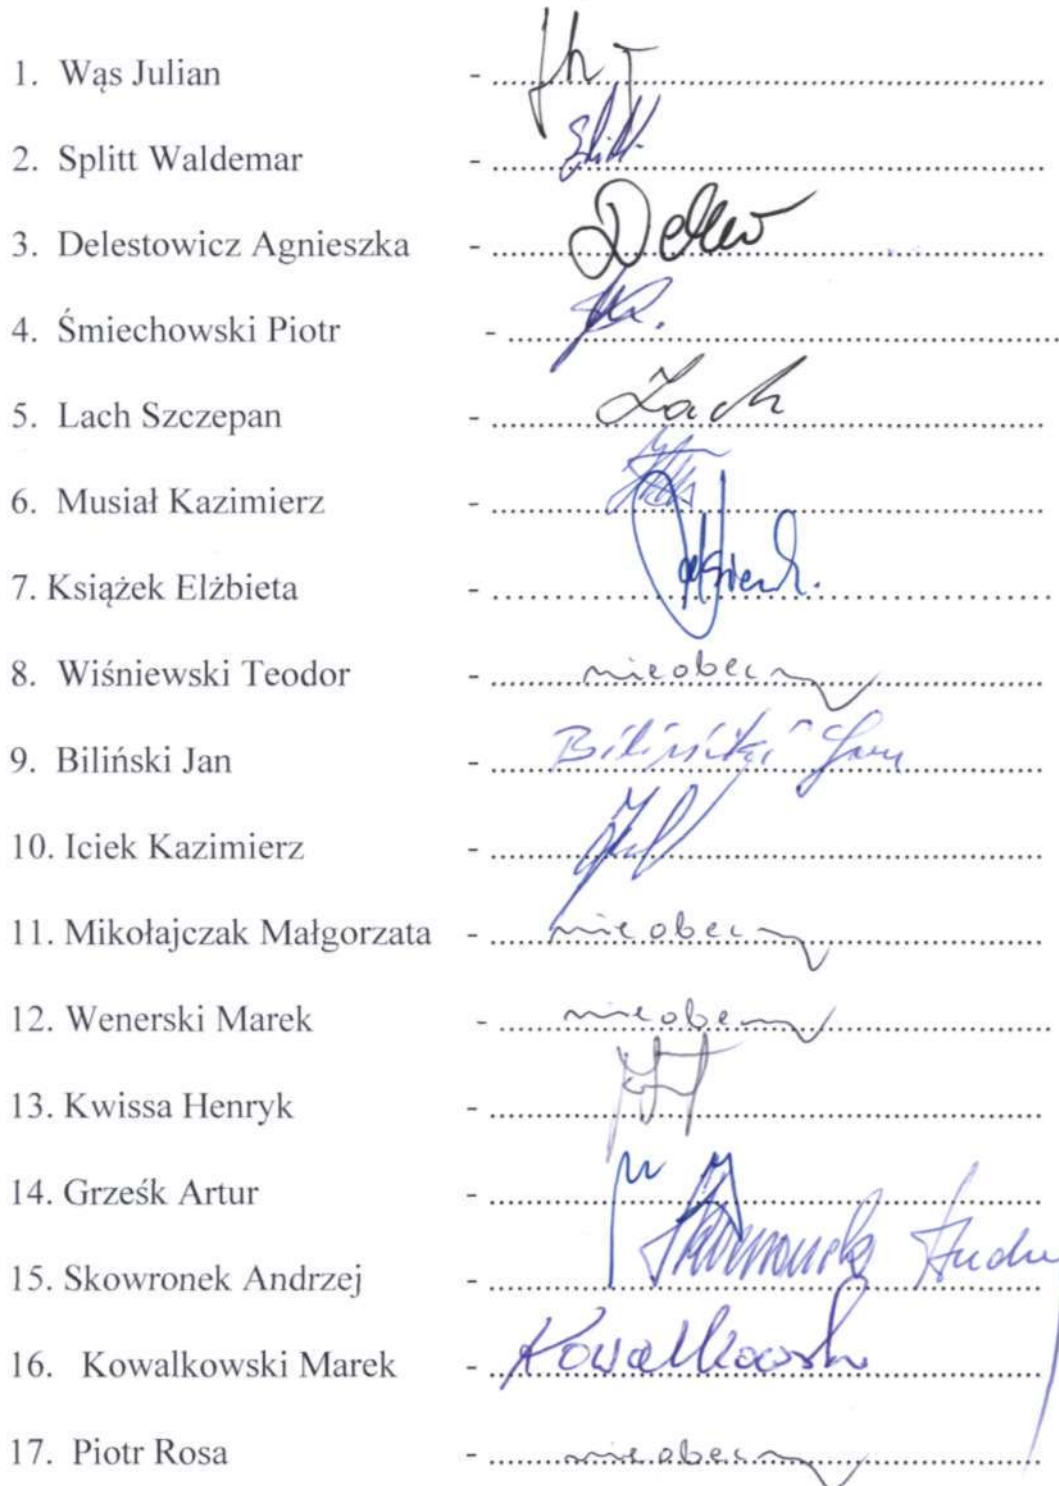 1. Wąs Julian - ....................
2. Splitt Waldemar - .................... Splitt.
3. Delestowicz Agnieszka - ....................
4. Śmiechowski Piotr - ....................
5. Lach Szczepan - .................... Lach
6. Musiał Kazimierz - ....................
7. Książek Elżbieta - ....................
8. Wiśniewski Teodor - .................... nieobecny
9. Biliński Jan - .................... Biliński Jan
10. Iciek Kazimierz - ....................
11. Mikołajczak Małgorzata - .................... nieobecny
12. Wenerski Marek - .................... nieobecny
13. Kwissa Henryk - ....................
14. Grześk Artur - ....................
15. Skowronek Andrzej - ....................
16. Kowalkowski Marek - .................... Kowalkowski
17. Piotr Rosa - .................... nieobecny